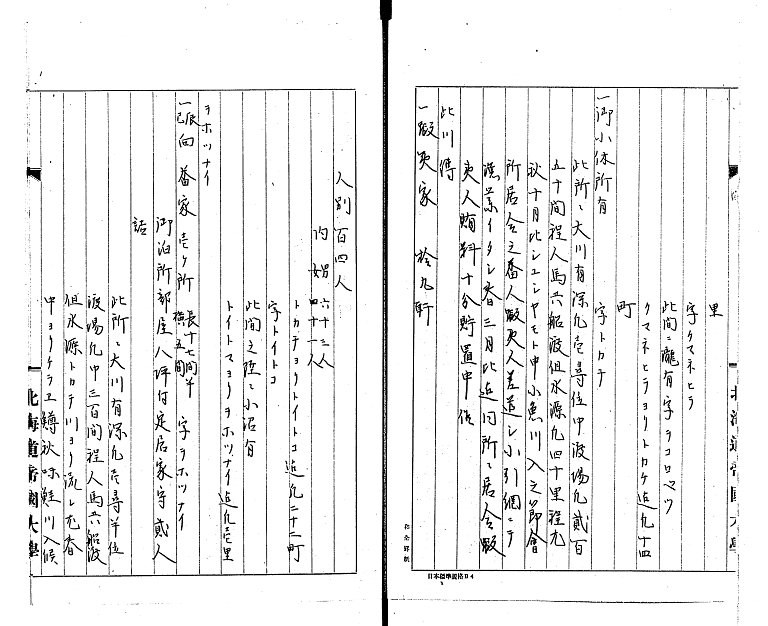 里
字クマネヒラ
此間ニ瀧有字ラコロベツ
クマネヒラヨリトカチ迄九十四
町
一御小休所有　字トカチ
此所ニ大川有深九壱尋位巾渡場九貳百
五十間程人馬共船渡但水源九四十里程尤
秋十月比シユンヤモト申小魚川入之節會
所居合之番人殿夷人差遣シ小引網ニテ
漁業イタシ春三月比迄同所ニ居合殿
夷人賄料十分貯置申候
此川縁
一殿夷家　拾九軒
人別百四人
内　六十三人
四十一人
トカチヨリトイトコ迄九二十二町
字トイトコ
此間之陸ニ小沼有
トイトマヨリヲホツナイ迄九壱里
ヲホツナイ
一派向番家壱ケ所　長十七間半　横五間　字ヲホツナイ
御泊所部屋八坪付定居家守貳人
詰
此所ニ大川有深九壱尋半位
渡場九巾三百間程人馬共船渡
但水源トカチ川ヨリ流レ尤春
中ヨリケラエ鱒秋味鮭川入候
北海道帝國大學
北海道帝國大學
日本標準規格B4